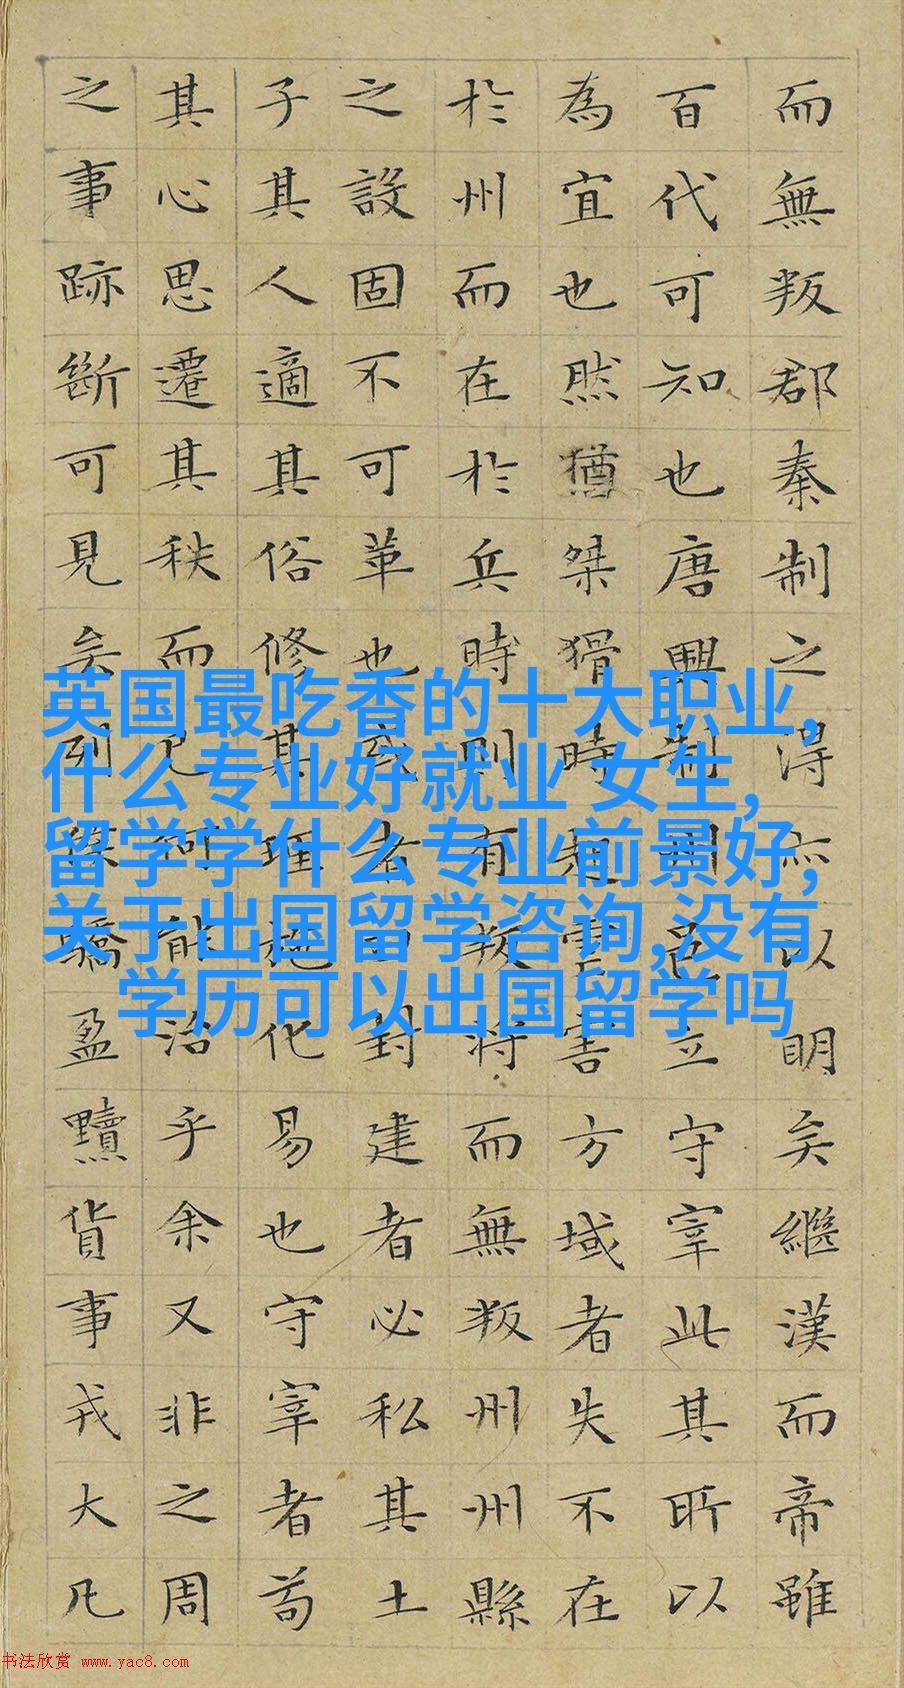 而無叛郡秦制之得亦以明矣繼漢而帝雖
百代可知也唐興制州邑立守宰此其所以
為宜也然猶桀猾時起虐害方域者失不在
於州而在於兵時則有叛將而無叛州州縣
之設固不可革也或者曰封建者必私其土
子其人適其俗修其理施化易也守宰者苟
其心思遷其秩而已何能治乎余又非之周
之事跡斷可見矣列侯驕盈黷貨事戎大凡
英国最吃香的十大职业,
什么专业好就业 女生,
留学学什么专业前景好,
关于出国留学咨询,没有
学历可以出国留学吗
书法欣赏 www.yac8.com